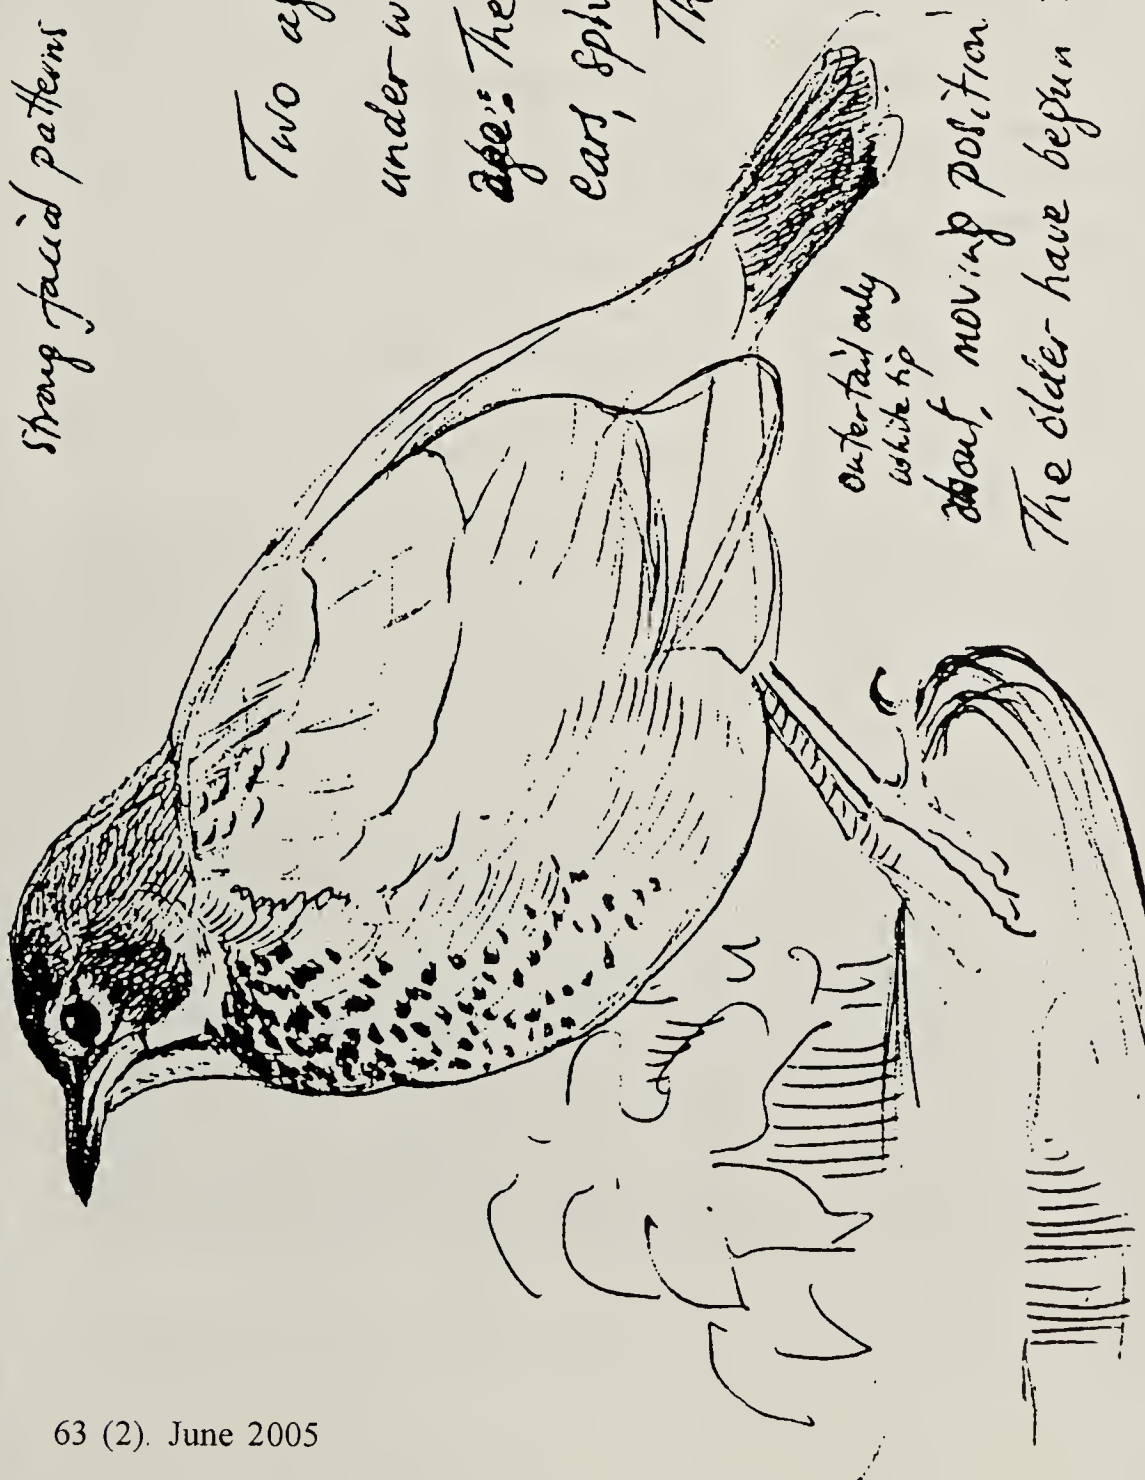 strong facial patterns
Two
under
age: The
ears,
outer tail only
white tip
about, moving position
The older have begun
63 (2). June 2005